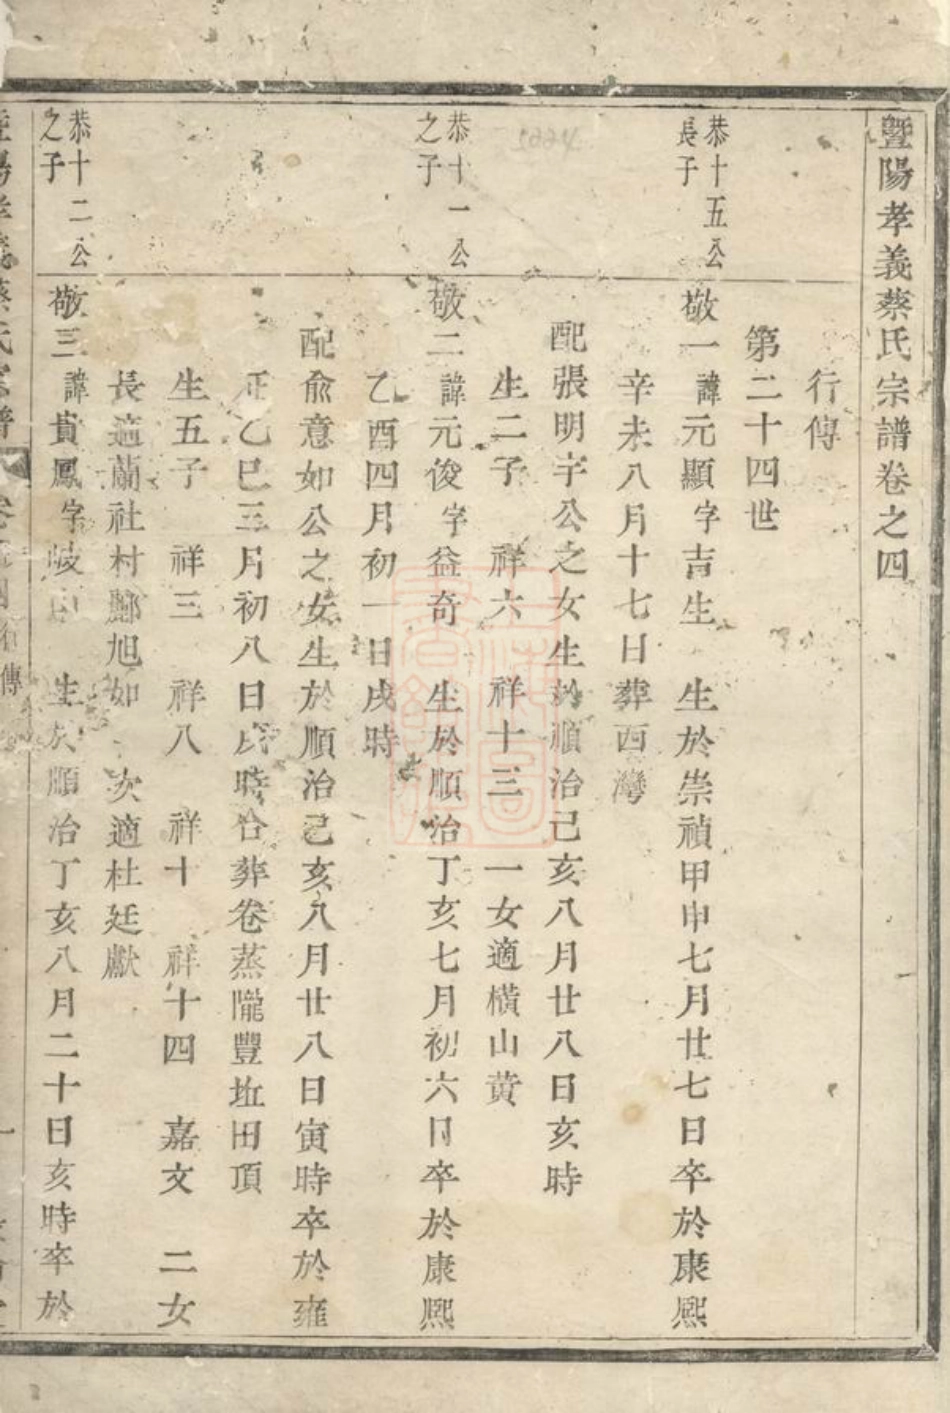 暨陽孝義蔡氏宗譜卷之四
行傳
第二十四世
恭十五公
長子
敬一諱元顯字吉生 生於崇禎甲申七月廿七日卒於康熙
辛未八月十七日葬西灣
配張明宇公之女生於順治己亥八月廿八日亥時
生二子 祥六 祥十三 一女適橫山黄
恭十一公
之子
敬二諱元俊字益奇 生於順治丁亥七月初六日卒於康熙
乙酉四月初一日戌時
配俞意如公之女生於順治己亥八月廿八日寅時卒於雍
正乙巳三月初八日時合葬卷蒸隴豐坵田頂
生五子 祥三 祥八 祥十 祥十四 嘉文 二女
長適蘭社村酈旭如 次適杜廷獻
恭十二公
之子
敬三諱貴鳳字岐山 生於順治丁亥八月二十日亥時卒於